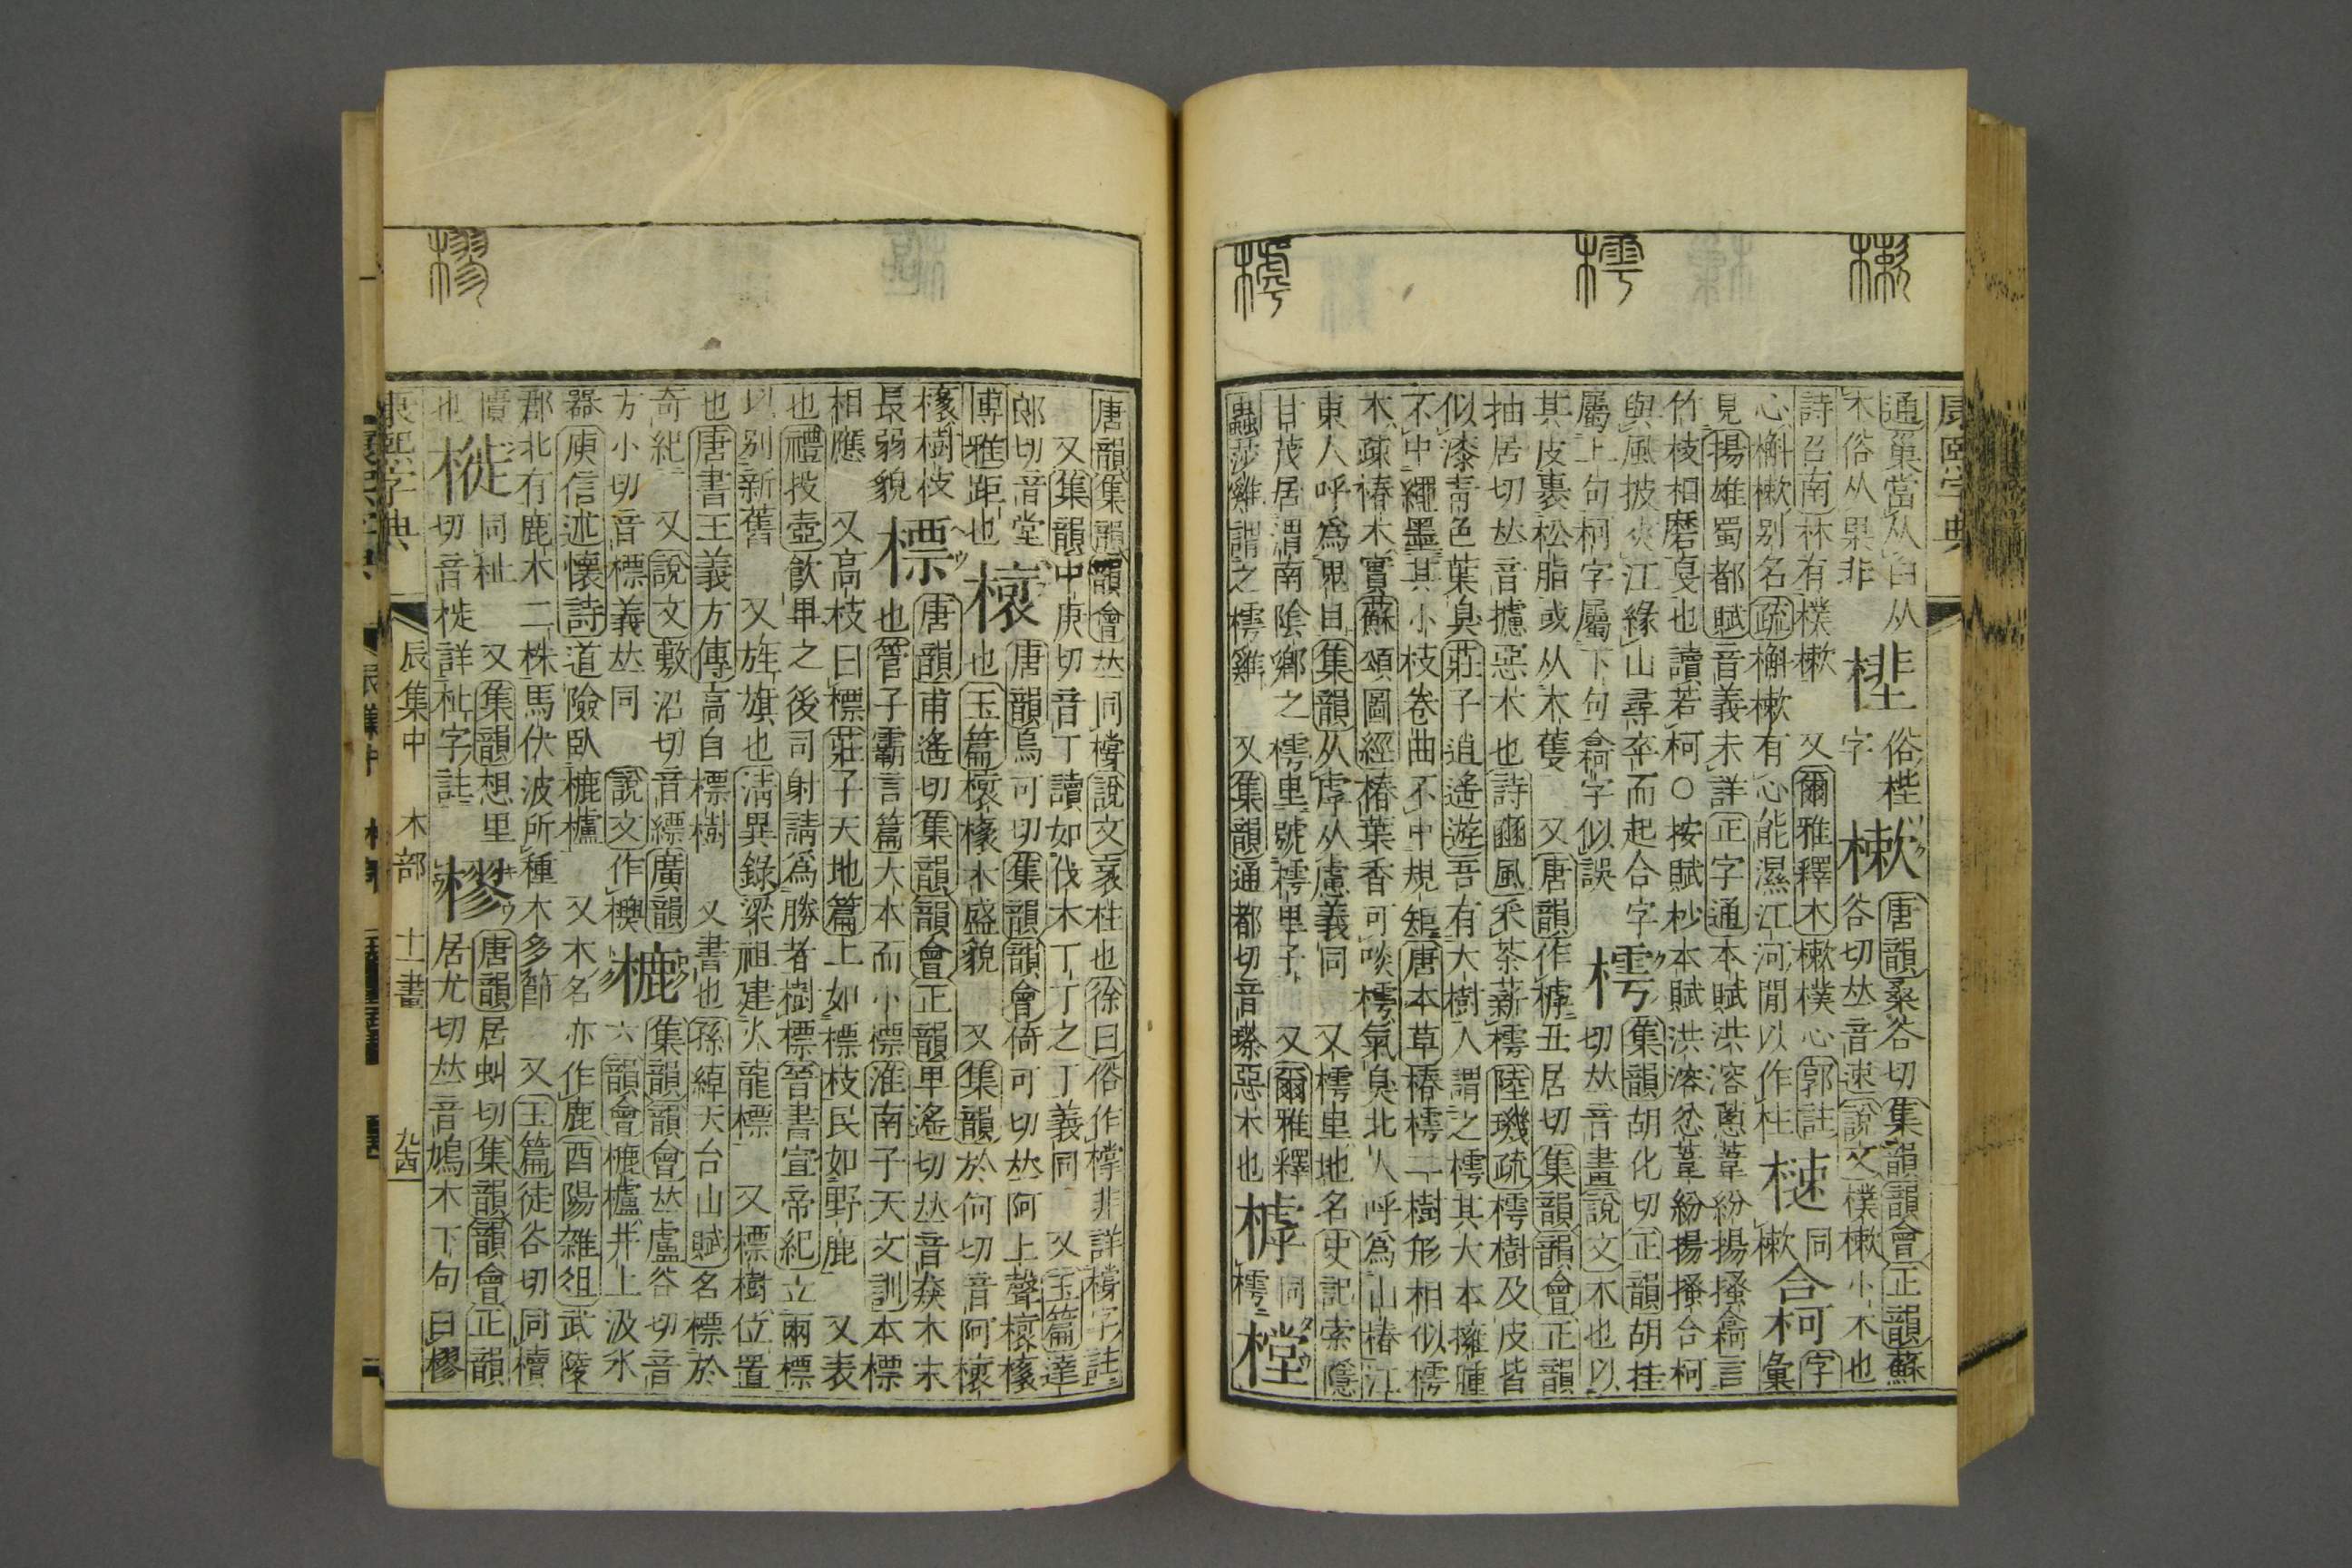 康熙字典
通巢當从臼从
木俗从巢非
俗梐
字
樕
唐韻桑谷切集韻韻會正韻蘇
谷切𠀤音速說文樸樕小木也
詩召南林有樸樕 又爾雅釋木樕樸心郭註
心槲樕別名疏槲樕有心能濕江河閒以作柱
同
樕
合柯
字
彙
見揚雄蜀都賦音義未詳正字通本賦洪溶蔥葦紛揚搔龠言
竹枝相磨戛也讀若柯○按賦杪本賦洪溶忿葦紛揚搔合柯
與風披夾江緣山尋卒而起合字
屬上句柯字屬下句龠字似誤
樗
集韻胡化切正韻胡挂
切𠀤音畫說文木也以
其皮裹松脂或从木蒦 又唐韻作㯉丑居切集韻韻會正韻
抽居切𠀤音攄惡木也詩豳風采荼薪樗陸璣疏樗樹及皮皆
似漆靑色葉臭莊子逍遙遊吾有大樹人謂之樗其大本擁腫
不中繩墨其小枝卷曲不中規矩唐本草椿樗二樹形相似樗
木疎椿木實蘇頌圖經椿葉香可啖樗氣臭北人呼爲山椿江
東人呼爲鬼目集韻从虖从慮義同 又樗里地名史記索隱
甘茂居渭南陰鄕之樗里號樗里子 又爾雅釋
蟲莎雞謂之樗雞 又集韻通都切音瑹惡木也
㯉
同
樗
樘
唐韻集韻韻會𠀤同橕說文衺柱也徐曰俗作撐非詳橕字註
又集韻中庚切音丁讀如伐木丁丁之丁義同 又玉篇達
郞切音堂
博雅距也
唐韻烏可切集韻韻會倚可切𠀤阿上聲
也玉篇木盛貌 又集韻於何切音阿
樹枝
長弱貌
標
唐韻甫遙切集韻韻會正韻𤰞遙切𠀤音猋木末
也管子霸言篇大本而小標淮南子天文訓本標
相應 又高枝曰標莊子天地篇上如標枝民如野鹿 又表
也禮投壺飮𤰞之後司射請爲勝者樹標晉書宣帝紀立兩標
以別新舊 又旌旗也淸異錄梁祖建火龍標 又標樹位置
也唐書王義方傳高自標樹 又書也孫綽天台山賦名標於
奇紀 又說文敷沼切音縹廣韻
方小切音標義𠀤同 說文作
樚
集韻韻會𠀤盧谷切音
六韻會樚櫨井上汲水
器庾信述懷詩道險臥樚櫨 又木名亦作鹿酉陽雜俎武陵
郡北有鹿木二株馬伏波所種木多節 又玉篇徒谷切同櫝
匵
也
樅
同
切音 又集韻想里
樛
唐韻居虯切集韻韻會正韻
居尤切𠀤音鳩木下句曰樛
康熙字典
辰集中 木部 十一畫